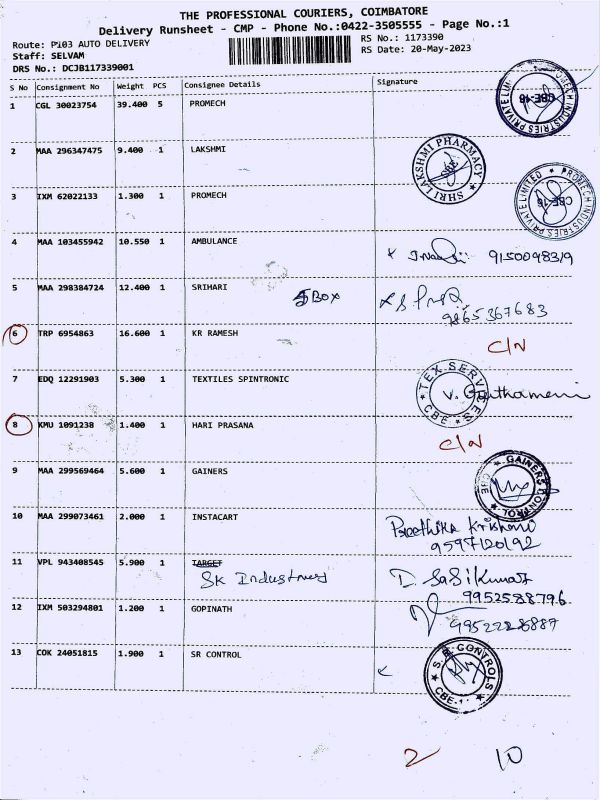 THE PROFESSIONAL COURIERS, COIMBATORE
Delivery Runsheet - CMP - Phone No.:0422-3505555 - Page No.:1
Route: P103 AUTO DELIVERY
RS No.: 1173390
Staff: SELVAM
RS Date: 20-May-2023
DRS No.: DCJB117339001
S No Consignment No Weight PCS Consignee Details Signature
1 CGL 30023754 39.400 5 PROMECH
PROMECH INDUSTRIES PRIVATE LIMITED CBE-18
2 MAA 296347475 9.400 1 LAKSHMI
SHRI LAKSHMI PHARMACY CBE
3 IXM 62022133 1.300 1 PROMECH
PROMECH INDUSTRIES PRIVATE LIMITED CBE-18
4 MAA 103455942 10.550 1 AMBULANCE
9150098319
5 MAA 298384724 12.400 1 SRIHARI 5 BOX
9865367683
6 TRP 6954863 16.600 1 KR RAMESH C/N
7 EDQ 12291903 5.300 1 TEXTILES SPINTRONIC
TEX SERVICES CBE
8 KMU 1091238 1.400 1 HARI PRASANA C/N
9 MAA 299569464 5.600 1 GAINERS
GAINERS CONTROL CBE
10 MAA 299073461 2.000 1 INSTACART
Preethika Krishnni
9597120192
11 VPL 943408545 5.900 1 TARGET
SK Industries D. SaSiKumar
9952588796
12 IXM 503294801 1.200 1 GOPINATH
9952228887
13 COK 24051815 1.900 1 SR CONTROL
S.R. CONTROLS CBE
2 10